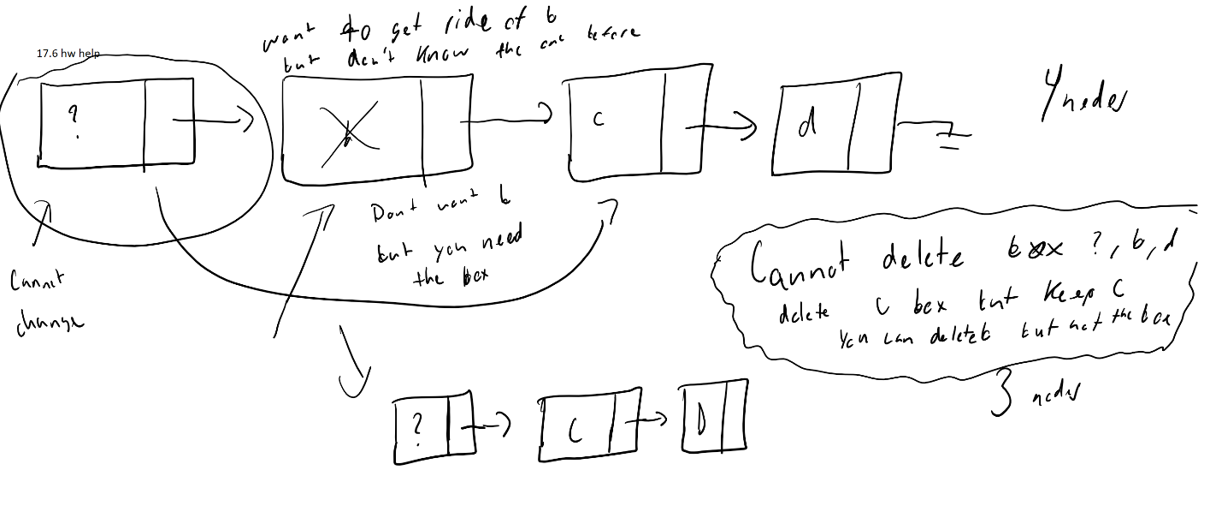 17.6 hw help
want to get ride of b
but don't know the one before
?
b
c
d
4 nodes
Cannot
change
Dont want b
but you need
the box
Cannot delete box ?, b, d
delete C box but keep C
You can delete b but not the box
3 nodes
?
C
D